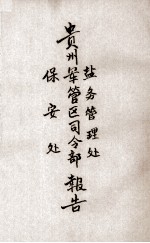 盐务管理处
贵州军管区司令部报告
保安处